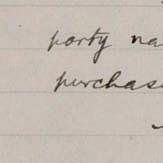 party na
purchas